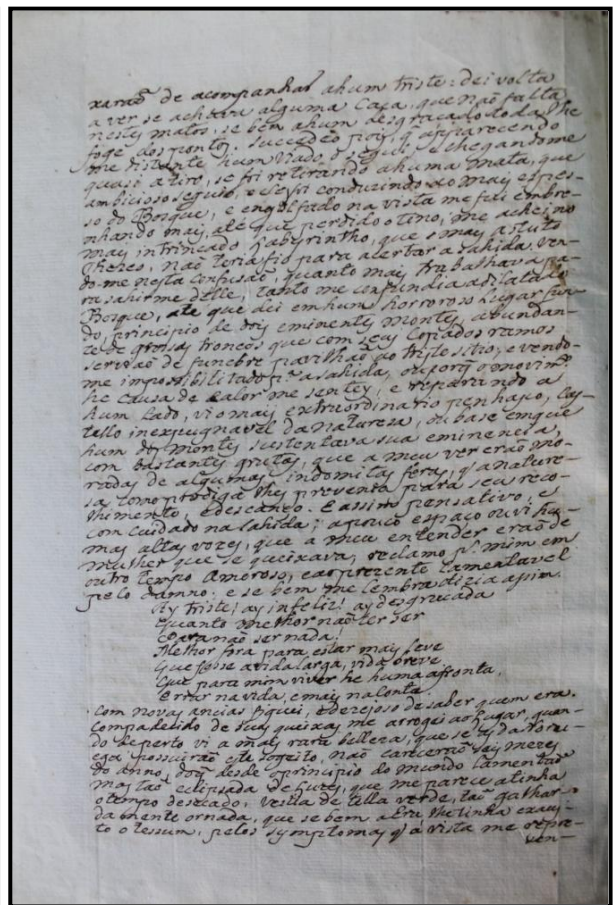 xaraõ de acompanhar ahum triste: dei volta
a ver se achava alguma Caça, que naõ falta
nestes matos, se bem ahum desgraçado toda lhe
foge dos pontos, succedeo pois, q apparecendo
me distante hum Viado, o segui, e chegandome
quasi a tiro, se foi retirando ahuma mata, que
ambicioso seguio, e elle foi conduzindo ao mais espes-
so do Bosque, e engolfado na vista me fui embre-
nhando mais, ate que perdido o tino, me achei no
mais intrincado Labyrintho, que o mais astuto
Thezeo, naõ teria fio para acertar a sahida, ven-
do-me nesta confusaõ, quanto mais trabalhava pa-
ra sahirme delle, tanto me confundia a dilatado
Bosque, ate que dei em hum horroroso Lugar fun-
do, principio de dois eminentes montes, abundan-
te de grossos troncos que com seus Copados ramos
serviaõ de funebre pavilhaõ ao triste sitio, e vendo-
me impossibilitado pª a sahida, ou porq o movimto
he causa de calor me sentey, e reparando a
hum Lado, vi o mais extraordinario penhasco, Cas-
tello inexpugnavel da naturesa, ou base em que
hum dos montes sustentava sua eminencia,
com bastantes grutas, que a meu ver eraõ mo-
radas de algumas indomitas feras, q a nature-
sa como prodiga lhes prevenia para seu reco-
lhimento, e descanço. E assim pensativo, e
com cuidado na sahida; a pouco espaço ouvi hu-
mas altas vozes, que a meu entender eraõ de
mulher que se queixava, reclamo pª mim em
outro tempo amoroso, e ao prezente lamentavel
pelo damno: e se bem me lembra dizia assim.
Ay triste! ay infeliz! ay desgraçada
Quanto melhor naõ ter ser
Para naõ ser nada!
Melhor fora para estar mais leve
Que fosse a vida larga, vida breve
Que para mim viver he huma afronta
Errar na vida, e mais na conta.
Com novas ancias fiquei, e dezejoso de saber quem era.
Compadecido de suas queixas me arrogei ao Lugar, quan-
do de perto vi a mais rara belleza, que se as da Noru-
ega possuiraõ este sogeito, naõ careceraõ seis mezes
do anno, do q desde o principio do mundo lamentaõ
mas taõ eclipsada de Luzes, que me pareceu a tinha
o tempo deseado, vestia de tella verde, taõ galhar-
damente ornada, que se bem a Eru lhe tinha exaus-
to o tessum, pelos symptomas q á vista me repre-
sen-